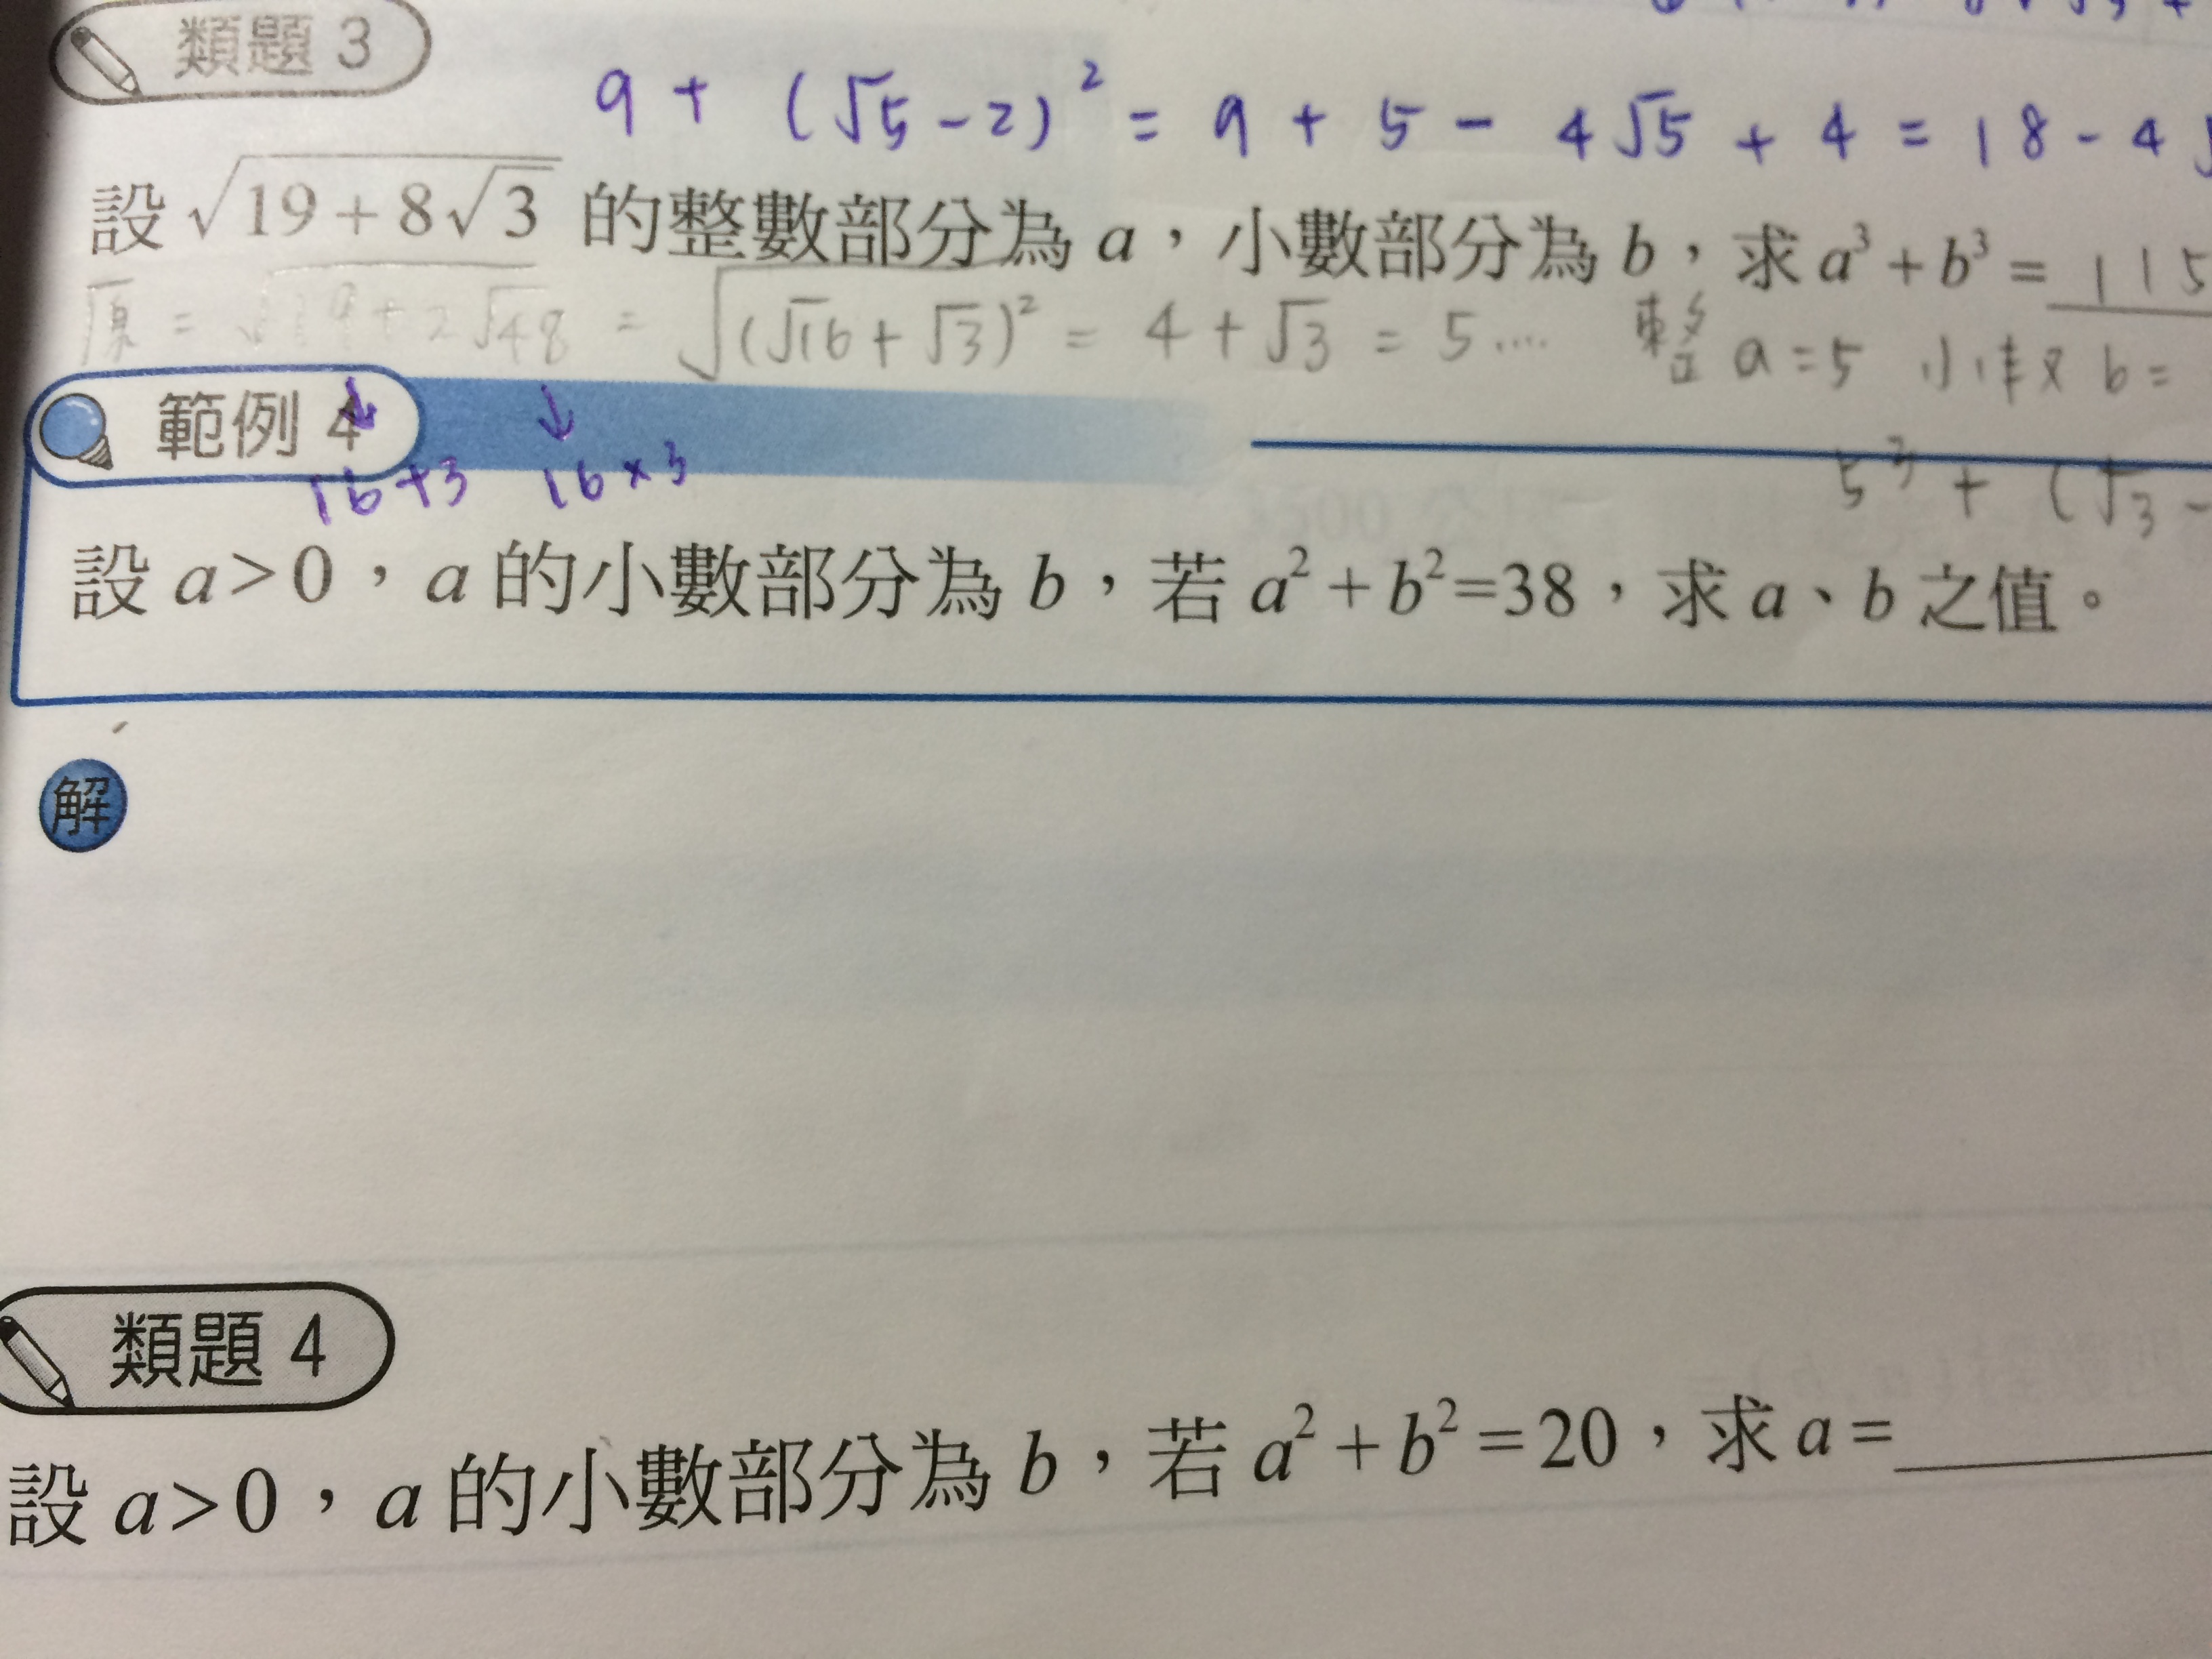 類題 3
9 + (√5 - 2)² = 9 + 5 - 4√5 + 4 = 18 - 4
設 √(19 + 8√3) 的整數部分為 a,小數部分為 b,求 a³ + b³ = 115
原 = √(19 + 2√48) = √((√16 + √3)²) = 4 + √3 = 5.... 整 a = 5 小 b =
範例 4
16 + 3 16 × 3
5³ + (√3 -
設 a > 0,a 的小數部分為 b,若 a² + b² = 38,求 a、b 之值。
解
類題 4
設 a > 0,a 的小數部分為 b,若 a² + b² = 20,求 a =